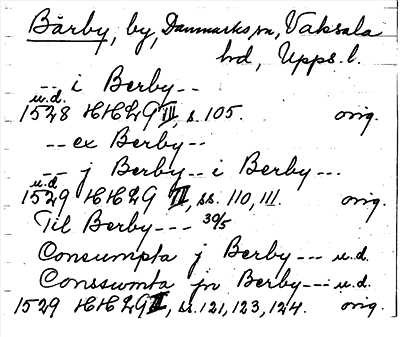 Bärby, by, Danmarks sn, Vaksala
hd, Upps. l.
-- i Berby --
u.d.
1528 HH29 III, s. 105. orig.
-- ex Berby --
-- j Berby -- i Berby ---
u.d.
1529 HH29 II, ss. 110, 111. orig.
Til Berby --- 30/5
Consumpta j Berby --- u.d.
Conssumta pn Berby --- u.d.
1529 HH29 II, ss. 121, 123, 124. orig.